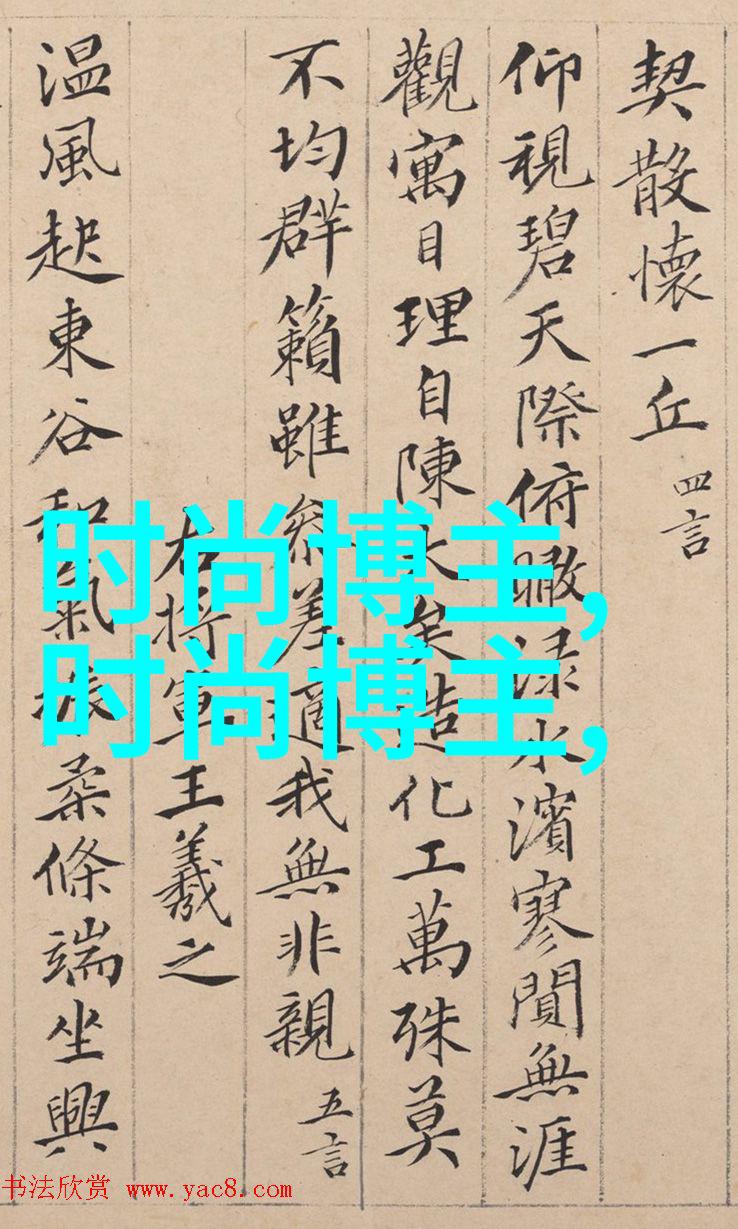 契散懷一丘 四言
仰視碧天際俯瞰渌水濱寥閴無涯
觀寓目理自陳大矣造化工萬殊莫
不均群籟雖叅差適我無非親 五言
右將軍王羲之
温風起東谷和氣振柔條端坐興
时尚博主,
时尚博主,
书法欣赏 www.yac8.com